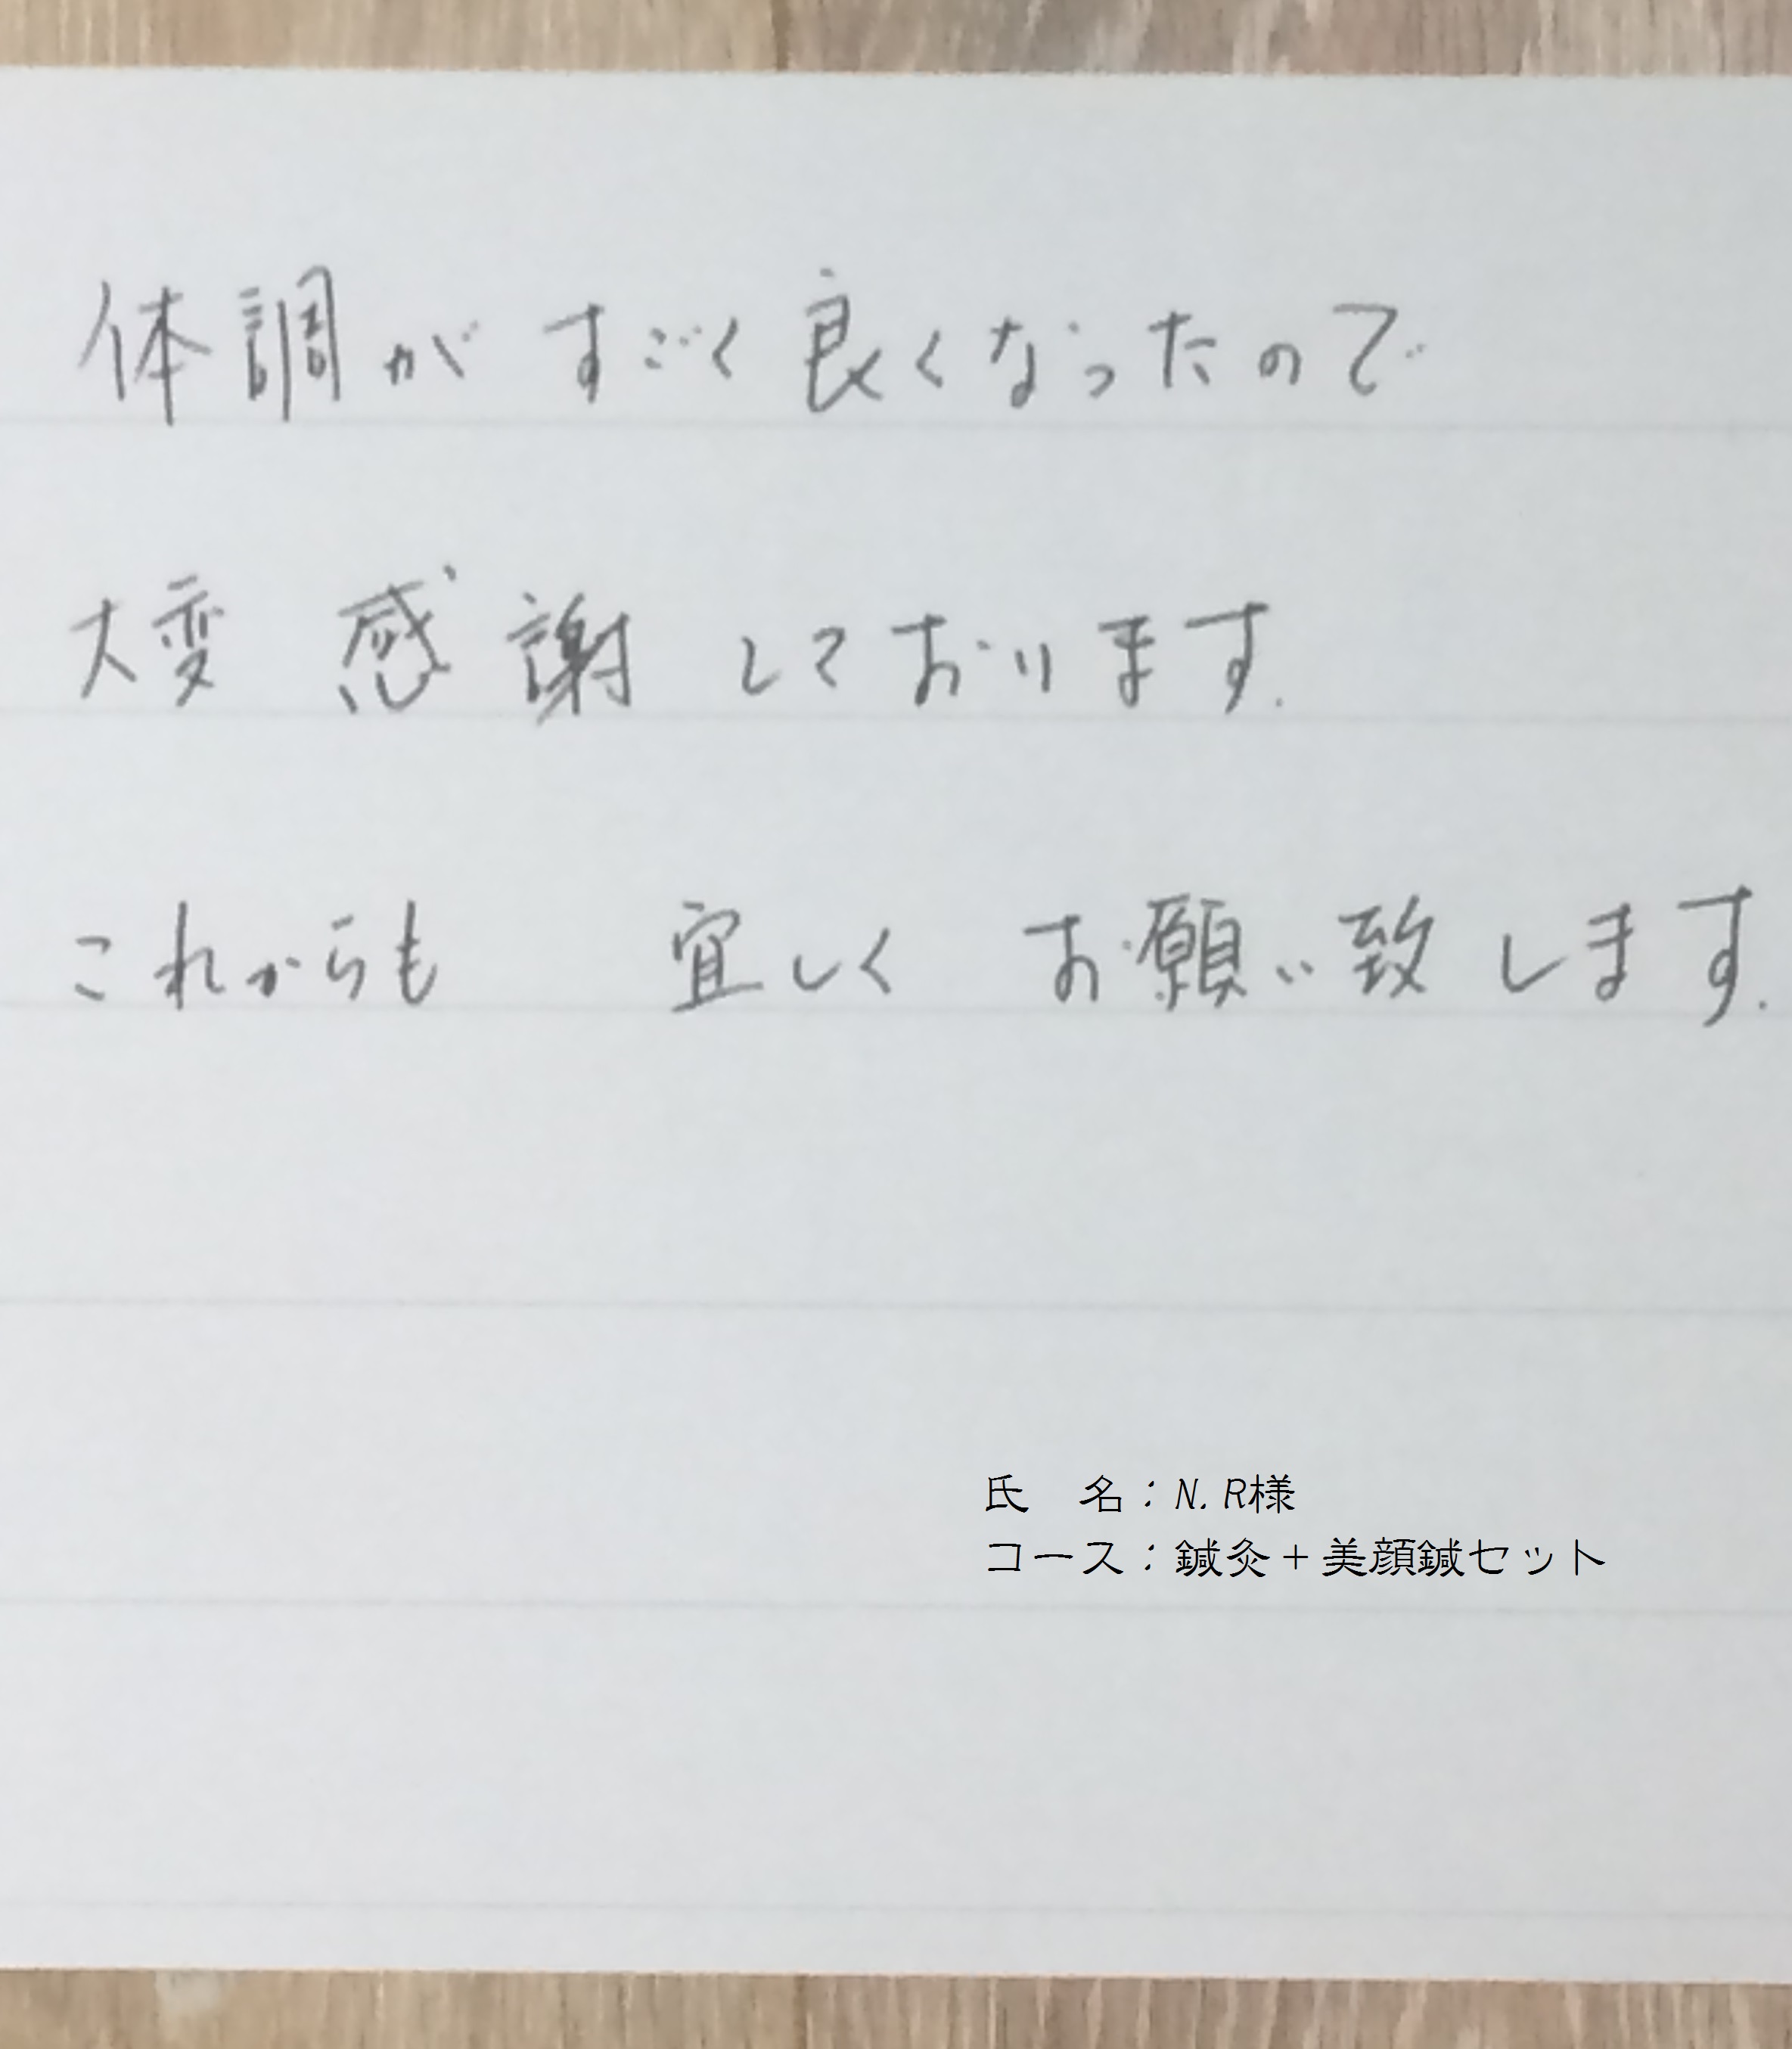 体調がすごく良くなったので
大変 感謝しております.
これからも 宜しく お願い致します.
氏　名：N.R様
コース：鍼灸＋美顔鍼セット